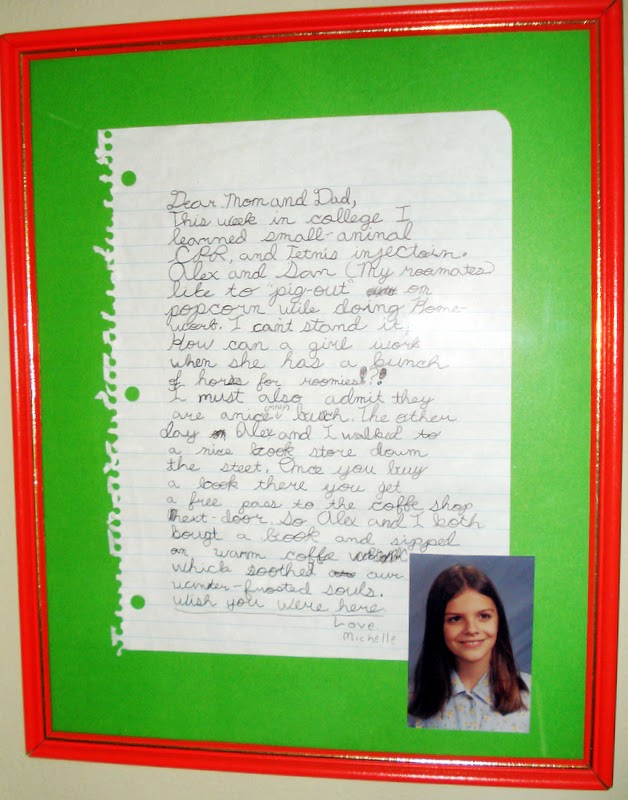 Dear Mom and Dad,
This week in college I
learned small-animal
CPR, and Tetnis injectoin.
Alex and Sam (My roomates)
like to "pig-out" on
popcorn wile doing Home-
work. I can't stand it,
How can a girl work
when she has a bunch
of horses for roomies!?!
I must also admit they
are a nice bunch. The other
day Alex and I walked to
a nice book store down
the steet. Once you buy
a book there you get
a free pass to the coffe shop
next-door. So Alex and I both
bougt a book and sipped
on warm coffe
which soothed our
winter-frosted souls.
Wish you were here
Love,
Michelle